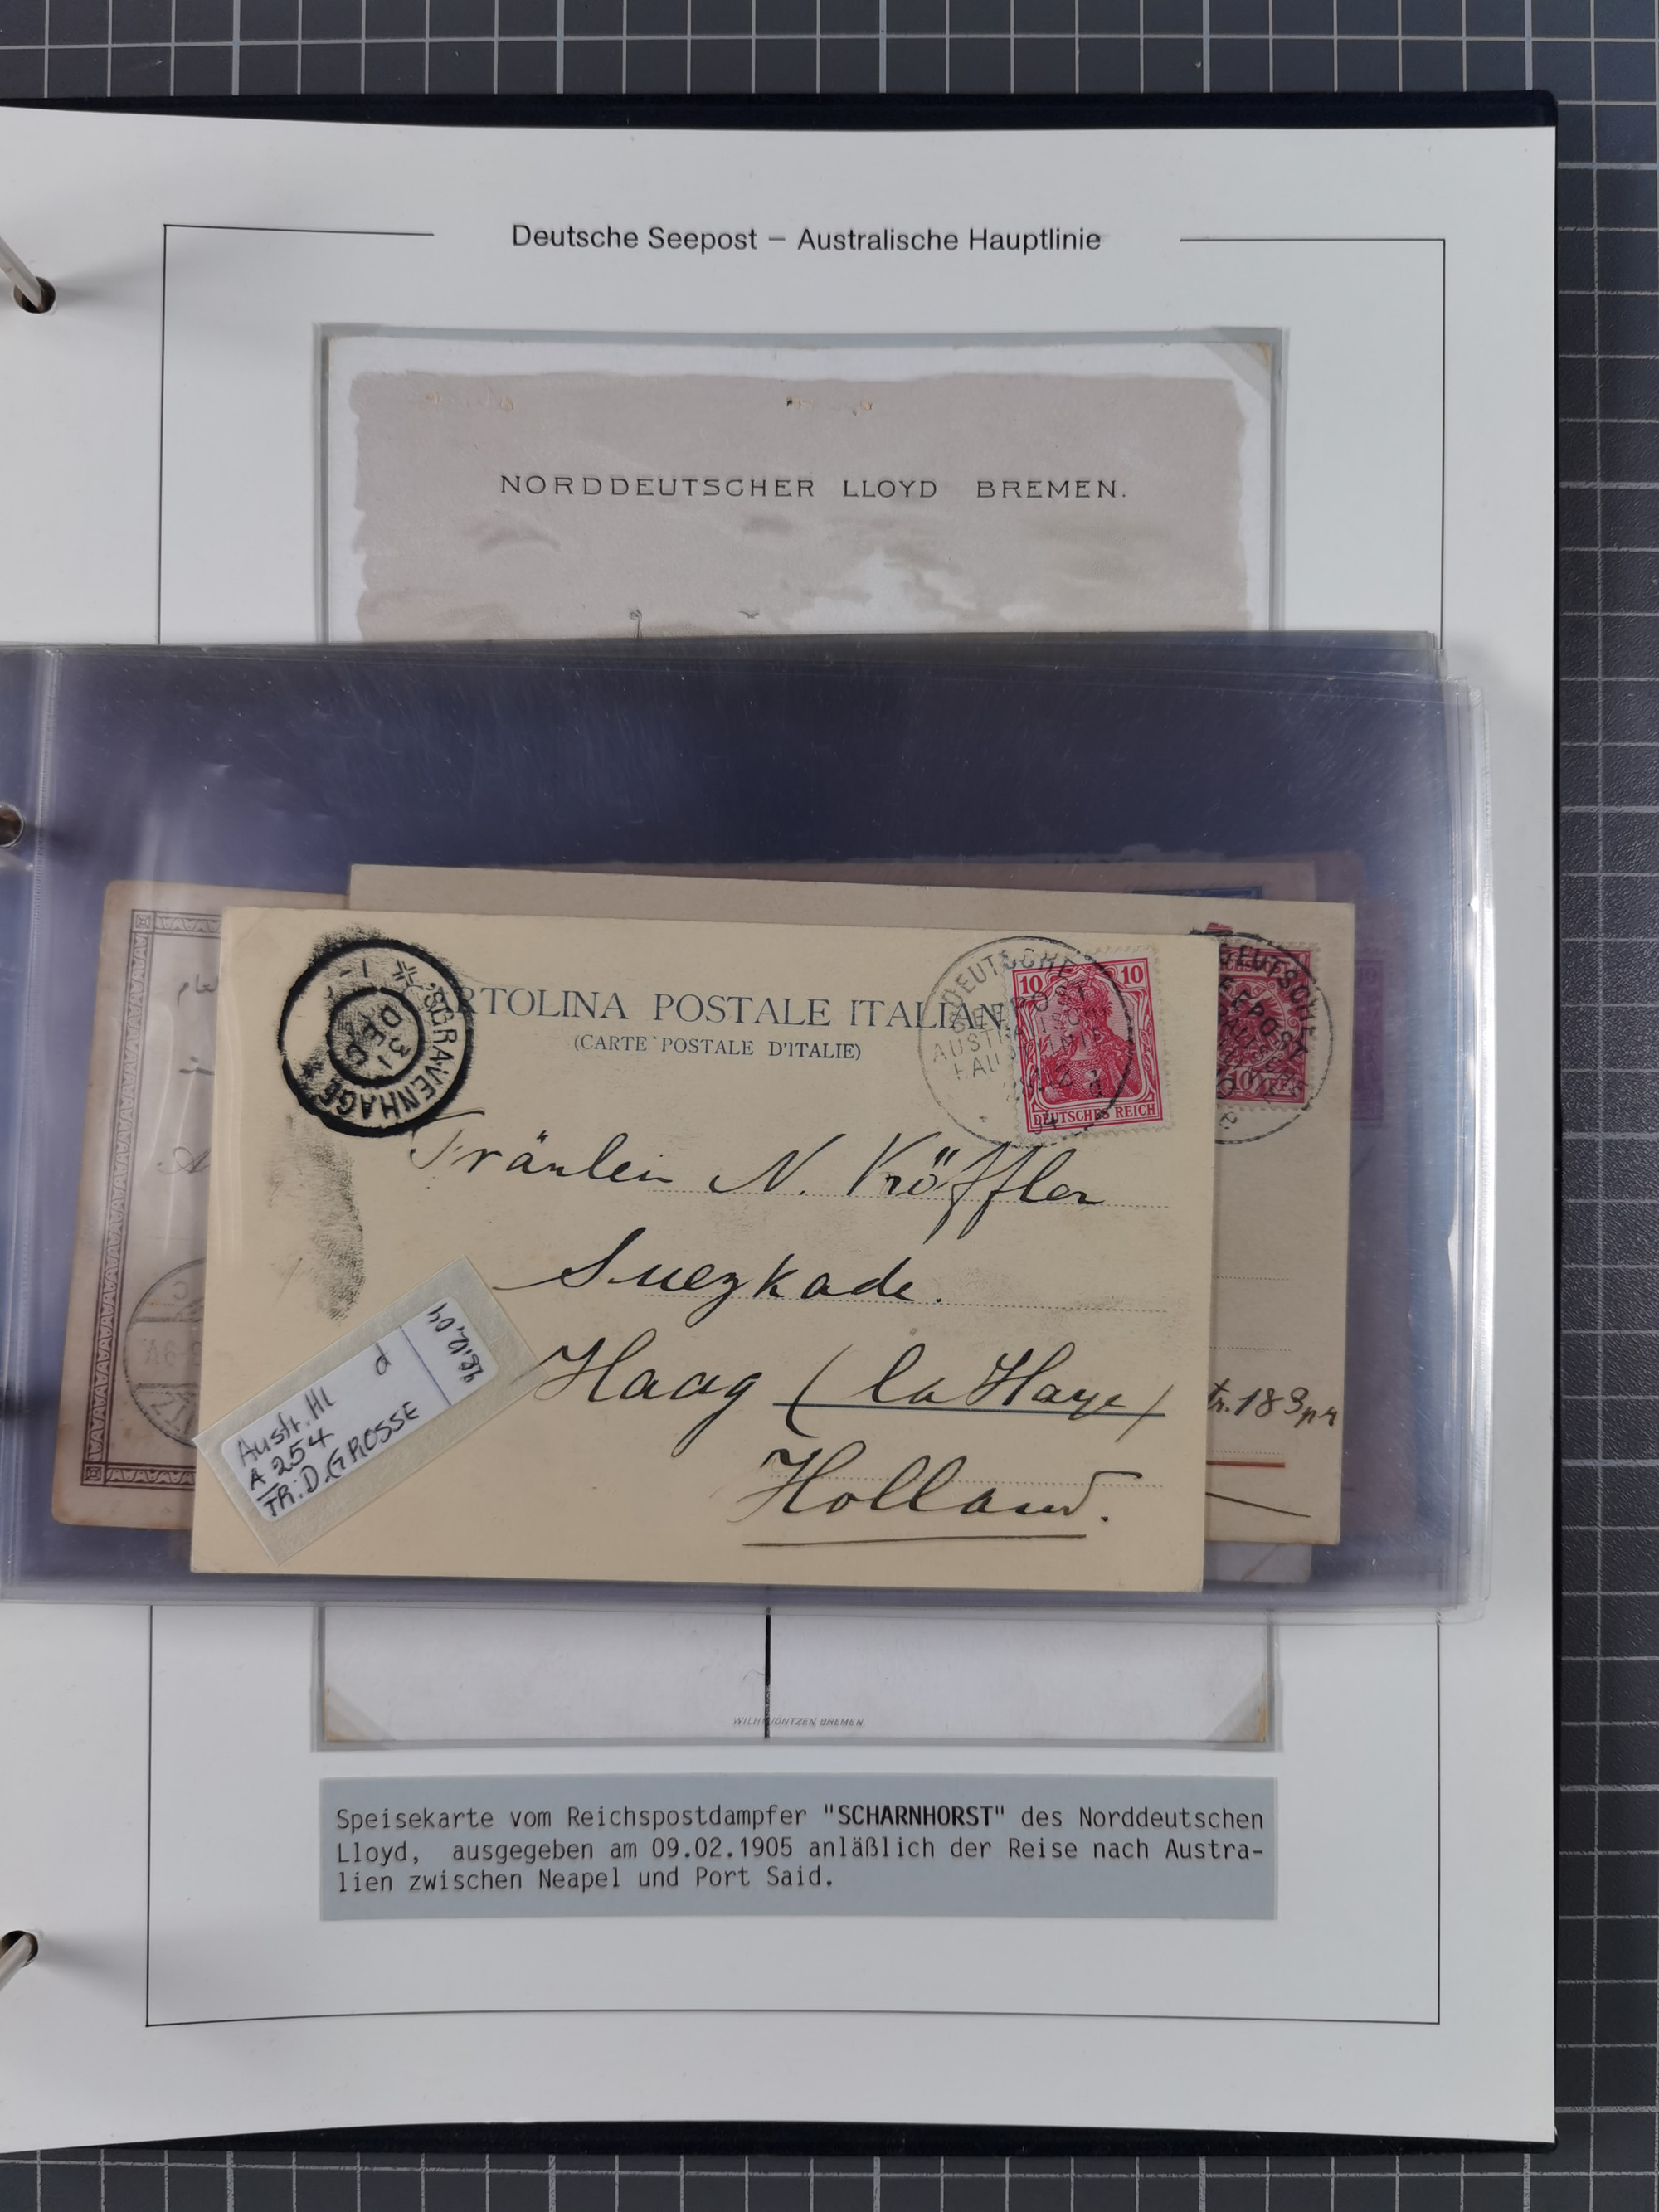 Deutsche Seepost – Australische Hauptlinie
NORDDEUTSCHER LLOYD BREMEN.
'SGRAVENHAGE
31
DEC
RTOLINA POSTALE ITALIAN
(CARTE POSTALE D'ITALIE)
DEUTSCHE
SEEPOST
10 10
DEUTSCHES REICH
DEUTSCHE
SEEPOST
10
Fräulein N. Kröffler
Suezkade.
Haag (la Haye)
Holland.
tr. 183
Austr. Hl d
A 254
TR: D. GROSSE
28.12.04
WILH. JÖNTZEN BREMEN
Speisekarte vom Reichspostdampfer "SCHARNHORST" des Norddeutschen
Lloyd, ausgegeben am 09.02.1905 anläßlich der Reise nach Austra-
lien zwischen Neapel und Port Said.